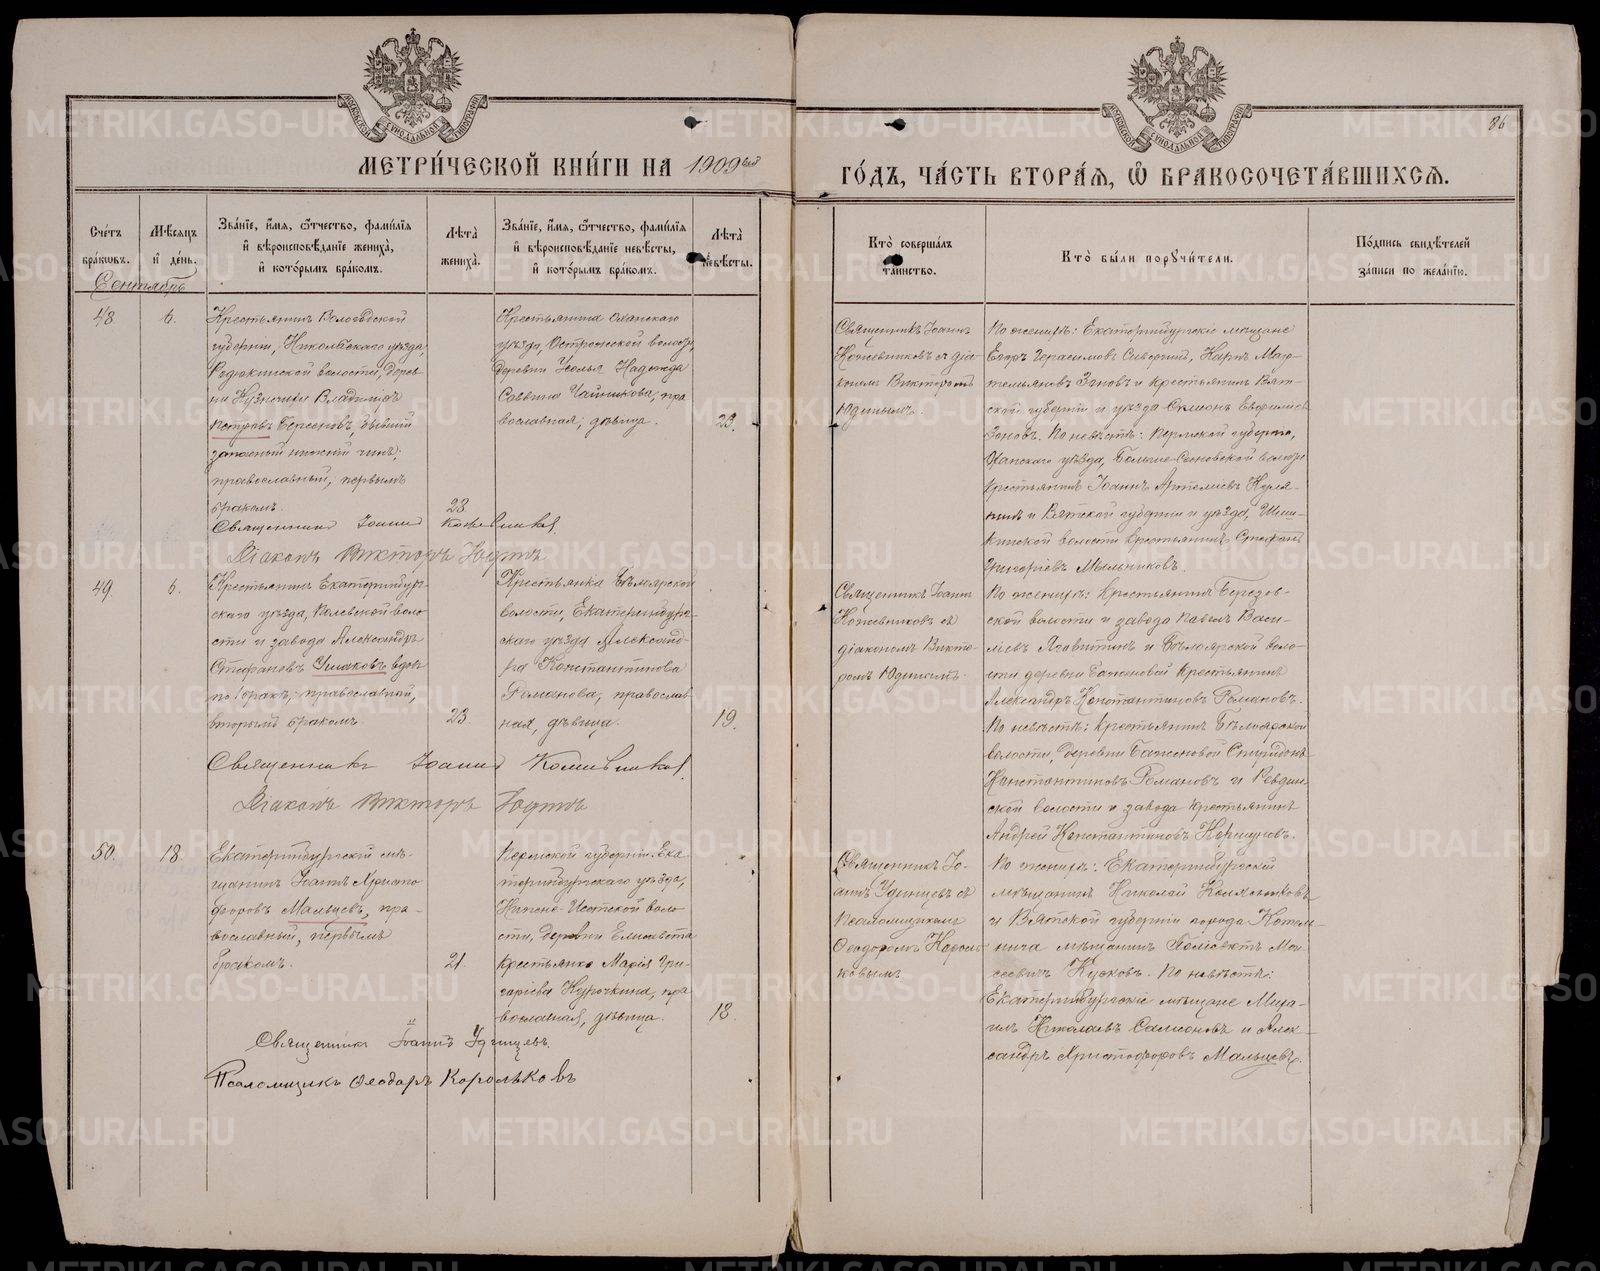 86
МЕТРИЧЕСКОЙ КНИГИ НА 1909 ГОДЪ, ЧАСТЬ ВТОРАЯ, Ѡ БРАКОСОЧЕТАВШИХСЯ.
Счетъ браковъ.
Мѣсяцъ и день.
Званіе, имя, отчество, фамилія и вѣроисповѣданіе жениха, и которымъ бракомъ.
Лѣта жениха.
Званіе, имя, отчество, фамилія и вѣроисповѣданіе невѣсты, и которымъ бракомъ.
Лѣта невѣсты.
Кто совершалъ таинство.
Кто были поручители.
Подпись свидѣтелей записи по желанію.
Сентябрь
48.
6.
Крестьянинъ Вологодской
губерніи, Никольскаго уѣзда,
волости, дерев
ни Кузнечихи Владиміръ
Петровъ Берсеновъ, бывшій
запасный нижній чинъ,
православный, первымъ
бракомъ.
28
Крестьянка Оханскаго
уѣзда, Острожской волости,
деревни Надежда
Саввина Чайникова, пра
вославная, дѣвица.
23.
Священникъ Іоаннъ
Кожевниковъ съ діа-
кономъ Викторомъ
Юдинымъ.
По женихѣ: Екатеринбургскіе мѣщане
Егоръ Герасимовъ Сиворгинъ, Карпъ Мар-
темьяновъ Зоновъ и крестьянинъ Вят-
ской губерніи и уѣзда Симонъ Евфиміевъ
Зоновъ. По невѣстѣ: Пермской губерніи,
Оханскаго уѣзда, Больше-Сосновской волости
крестьянинъ Іоаннъ Артеміевъ
и Вятской губерніи и уѣзда,
кинской волости крестьянинъ Стефанъ
Григорьевъ Мельниковъ.
Священникъ Іоаннъ Кожевниковъ
Діаконъ Викторъ Юдинъ
49.
6.
Крестьянинъ Екатеринбург-
скаго уѣзда, Полевской воло-
сти и завода Александръ
Стефановъ Ушаковъ вдовъ
по 1 бракѣ, православный,
вторымъ бракомъ.
23
Крестьянка Бѣлоярской
волости, Екатеринбург-
скаго уѣзда Александ-
ра Константинова
Романова, православ-
ная, дѣвица.
19.
Священникъ Іоаннъ
Кожевниковъ съ
діакономъ Викто-
ромъ Юдинымъ.
По женихѣ: крестьянинъ Березов-
ской волости и завода Павелъ Васи-
ліевъ Логвинъ и Бѣлоярской воло-
сти деревни Баженовой крестьянинъ
Александръ Константиновъ Романовъ.
По невѣстѣ: крестьянинъ Бѣлоярской
волости, деревни Баженовой Спиридонъ
Константиновъ Романовъ и Ревдин-
ской волости и завода крестьянинъ
Андрей Константиновъ Коршуновъ.
Священникъ Іоаннъ Кожевниковъ
Діаконъ Викторъ Юдинъ
50.
18.
Екатеринбургскій мѣ-
щанинъ Іоаннъ Христо-
форовъ Мальцевъ, пра-
вославный, первымъ
бракомъ.
21.
Пермской губерніи Ека
теринбургскаго уѣзда,
Нижне-Исетской воло
сти, деревни Елисавета
крестьянка Марія Гри-
горіева Курочкина, пра
вославная, дѣвица.
18.
Священникъ Іо-
аннъ Удинцевъ съ
псаломщикомъ
Ѳеодоромъ Король-
ковымъ
По женихѣ: Екатеринбургскій
мѣщанинъ Николай
и Вятской губерніи города Котель-
нича мѣщанинъ Поліевктъ Мои
сеевичъ По невѣстѣ:
Екатеринбургскіе мѣщане Миха-
илъ Николаевъ Самсоновъ и Алек-
сандръ Христофоровъ Мальцевъ.
Священникъ Іоаннъ Удинцевъ.
Псаломщикъ Ѳеодоръ Корольковъ
METRIKI.GASO-URAL.RU